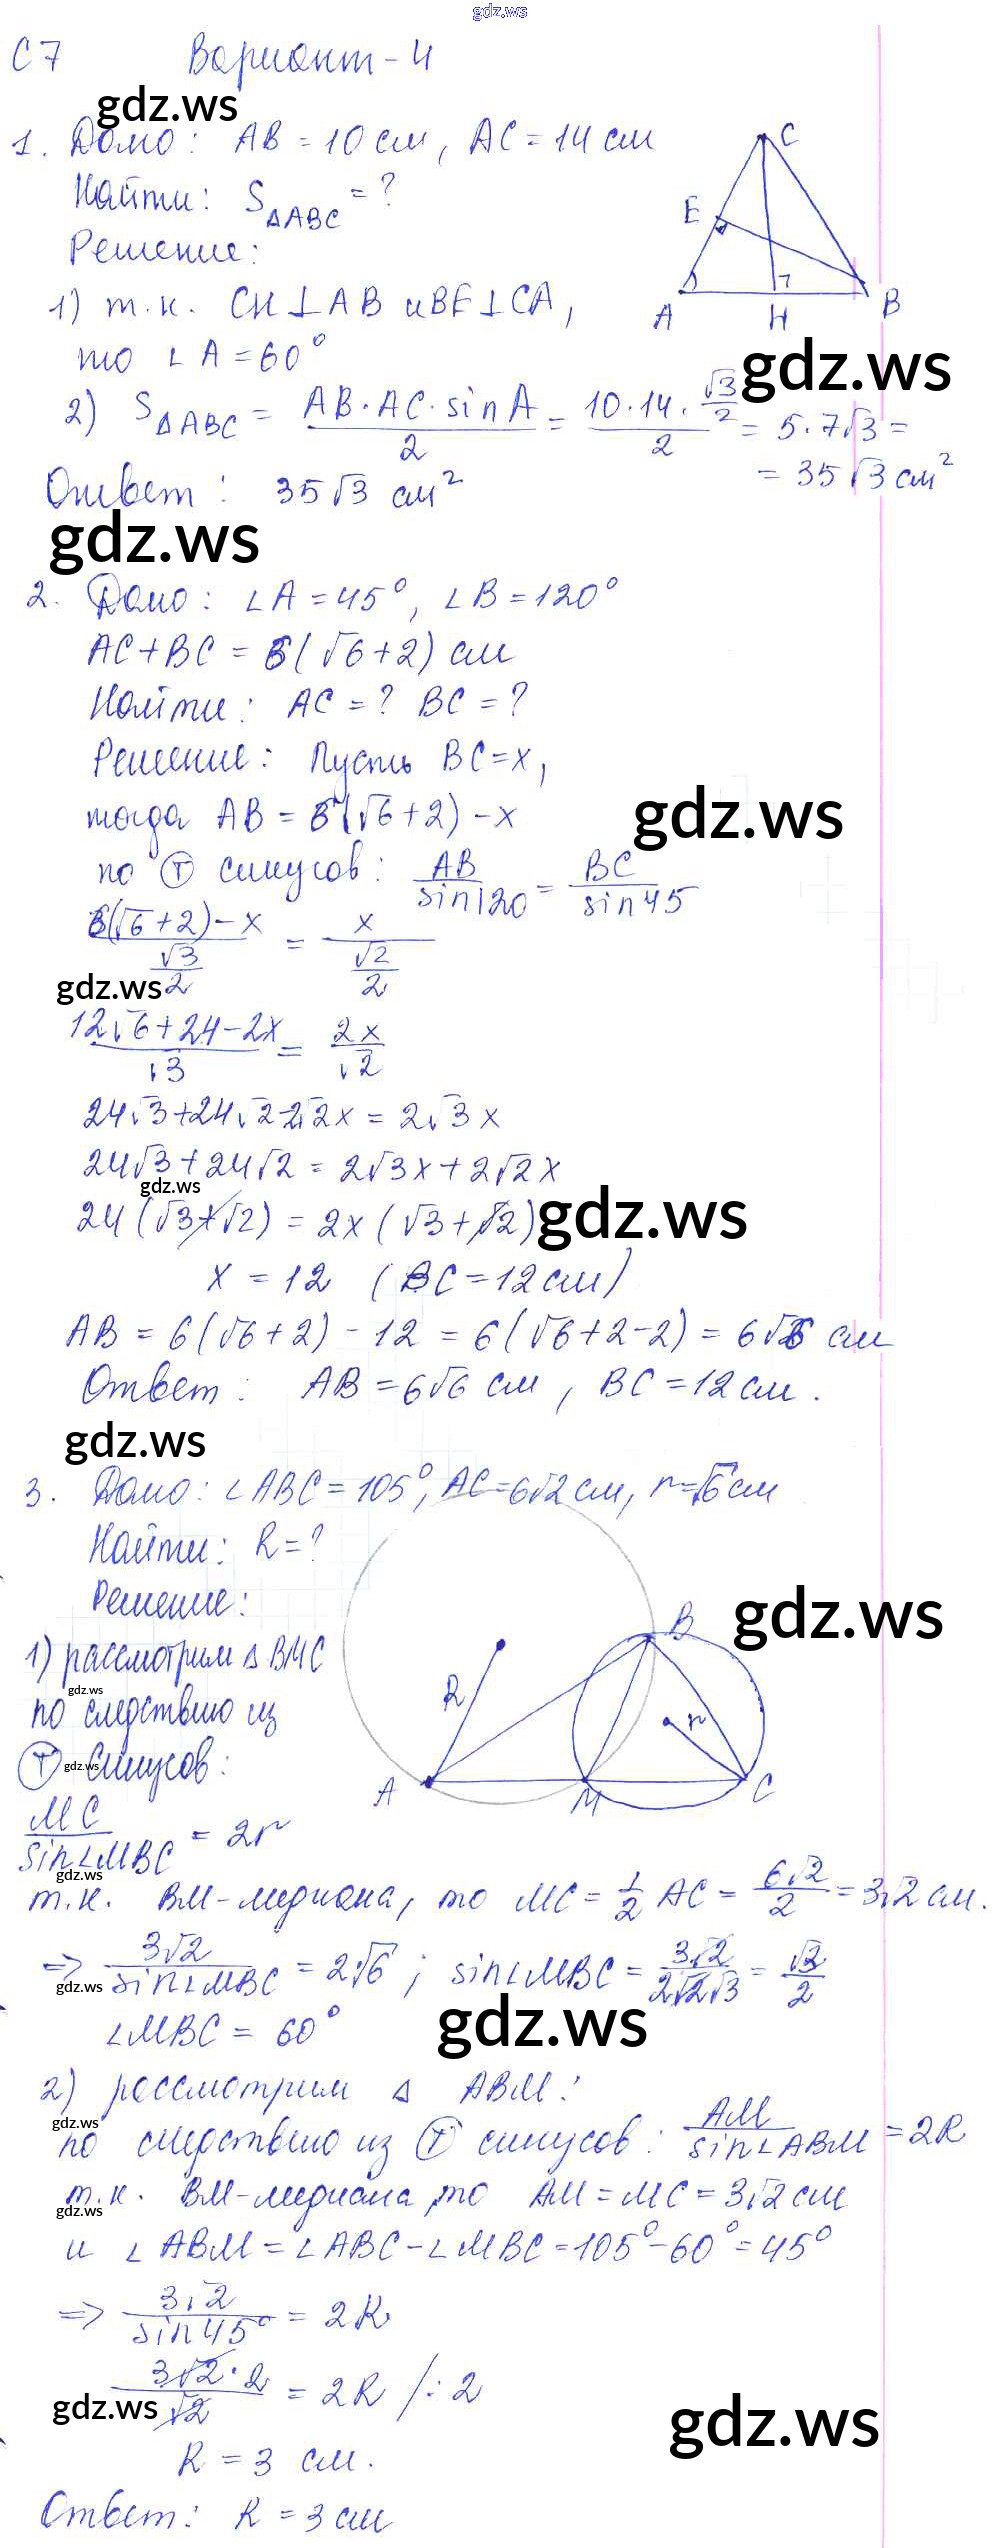 gdz.ws
С7 Вариант-4
gdz.ws
1. Дано: AB = 10 см, AC = 14 см
Найти: S△ABC = ?
Решение:
C
E
A H B
1) т.к. CH⊥AB и BE⊥CA,
то ∠A = 60°
gdz.ws
2) S△ABC = AB·AC·sinA/2 = 10·14·√3/2/2 = 5·7√3 =
= 35√3 см²
Ответ: 35√3 см²
gdz.ws
2. Дано: ∠A = 45°, ∠B = 120°
AC+BC = 6(√6+2) см
Найти: AC = ? BC = ?
Решение: Пусть BC = x,
тогда AB = 6(√6+2) - x
gdz.ws
по Ⓣ синусов: AB/sin120 = BC/sin45
6(√6+2)-x/√3/2 = x/√2/2
gdz.ws
12√6+24-2x/√3 = 2x/√2
24√3+24√2-2√2x = 2√3x
24√3+24√2 = 2√3x+2√2x
gdz.ws
24(√3+√2) = 2x(√3+√2)
gdz.ws
x = 12 (BC = 12 см)
AB = 6(√6+2) - 12 = 6(√6+2-2) = 6√6 см
Ответ: AB = 6√6 см, BC = 12 см.
gdz.ws
3. Дано: ∠ABC = 105°, AC = 6√2 см, r = √6 см
Найти: R = ?
Решение:
gdz.ws
1) рассмотрим △BMC
gdz.ws
по следствию из
Ⓣ синусов:
gdz.ws
B
R r
A M C
MC/sin∠MBC = 2r
gdz.ws
т.к. BM-медиана, то MC = 1/2 AC = 6√2/2 = 3√2 см.
=> 3√2/sin∠MBC = 2√6; sin∠MBC = 3√2/2√2√3 = √3/2
gdz.ws
∠MBC = 60°
gdz.ws
2) рассмотрим △ ABM:
gdz.ws
по следствию из Ⓣ синусов: AM/sin∠ABM = 2R
т.к. BM-медиана, то AM = MC = 3√2 см
gdz.ws
и ∠ABM = ∠ABC - ∠MBC = 105° - 60° = 45°
=> 3√2/sin45° = 2R
3√2·2/√2 = 2R /:2
gdz.ws
gdz.ws
R = 3 см.
Ответ: R = 3 см